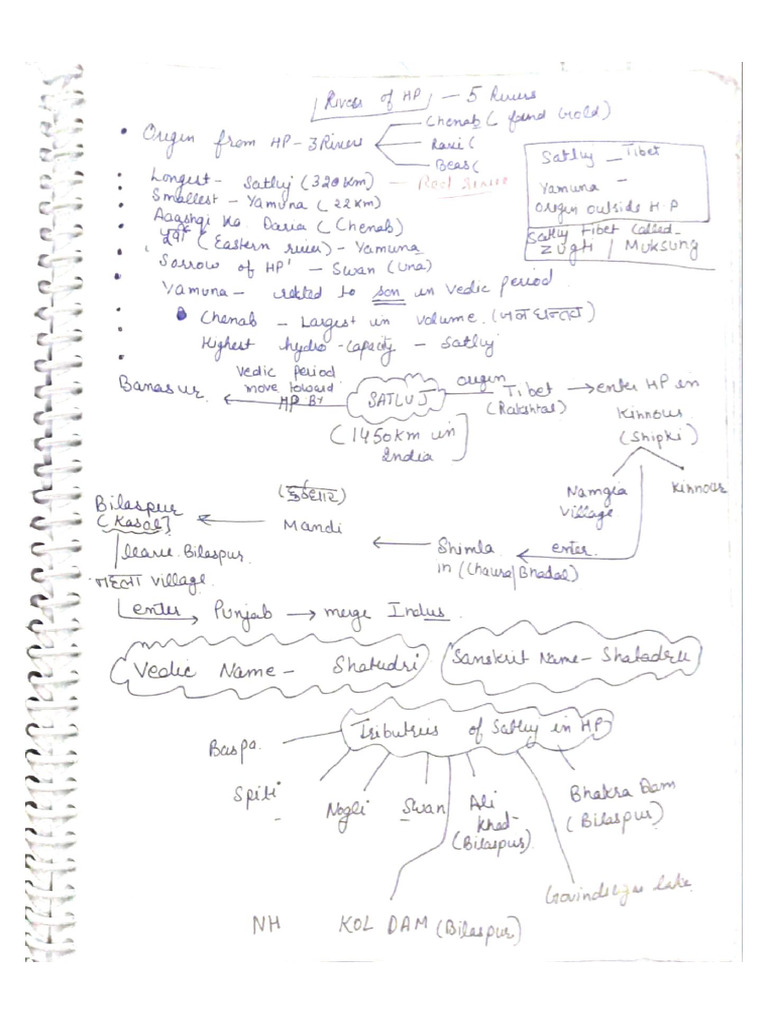 Rivers of HP — 5 Rivers
• Origin from HP - 3 Rivers
Chenab ( found Gold)
Ravi (
Beas (
Satluj — Tibet
Yamuna —
Origin outside H.P
Satluj Tibet Called -
ZUGH / MUKSUNG
• Longest - Satluj (320 Km) — Red River
• Smallest - Yamuna (22 Km)
• Ka Daria (Chenab)
• (Eastern river) - Yamuna
• Sorrow of HP' - Swan (Una)
• Yamuna - related to son in Vedic Period
• Chenab - Largest in volume (जल घनत्व)
Highest hydro-capacity - Satluj
Banasur
Vedic period
move toward
HP By
SATLUJ
(1450km in
India
origin
Tibet → enter HP in
(Rakshtal)
Kinnour
(Shipki)
Namgia
Village
Kinnour
enter
Shimla
in (Chaura/Bhadal)
Mandi
Bilaspur
(Kasol)
leave Bilaspur
village
enter → Punjab → merge Indus
Vedic Name - Shatudri
Sanskrit Name - Shatadru
Tributries of Satluj in HP
Baspa
Spiti
Nogli
Swan
Ali
Khad
(Bilaspur)
Bhakra Dam
(Bilaspur)
lake
NH
KOL DAM (Bilaspur)